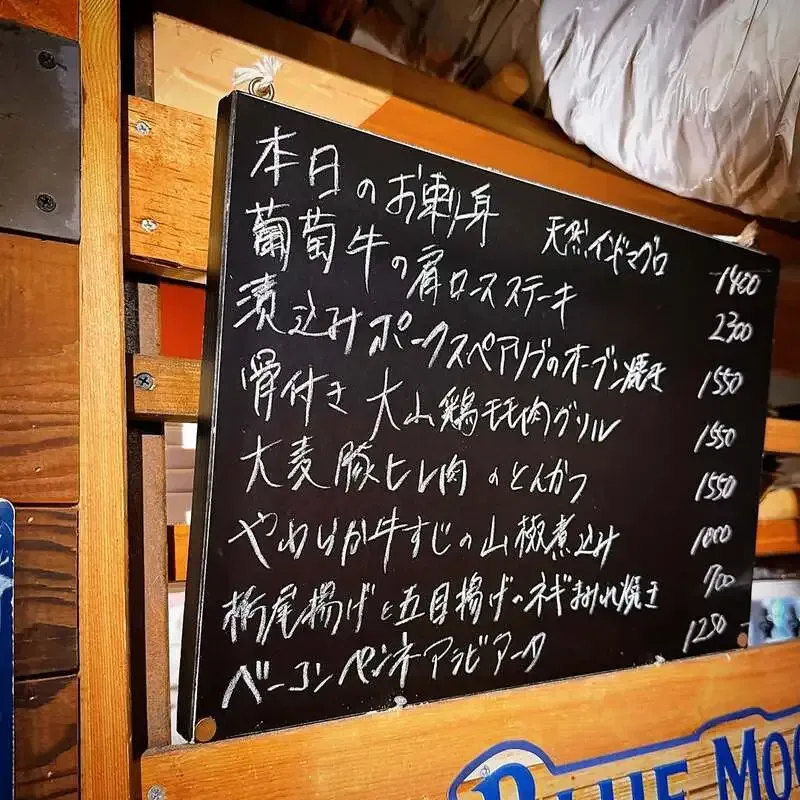 本日のお刺身 天然インドマグロ 1400
葡萄牛の肩ロースステーキ 2300
漬込みポークスペアリブのオーブン焼き 1550
骨付き大山鶏モモ肉グリル 1550
大麦豚ヒレ肉のとんかつ 1550
やわらか牛すじの山椒煮込み 1000
栃尾揚げと五目揚げのネギまみれ焼き 700
ベーコンペンネアラビアータ 1250
BLUE MOO